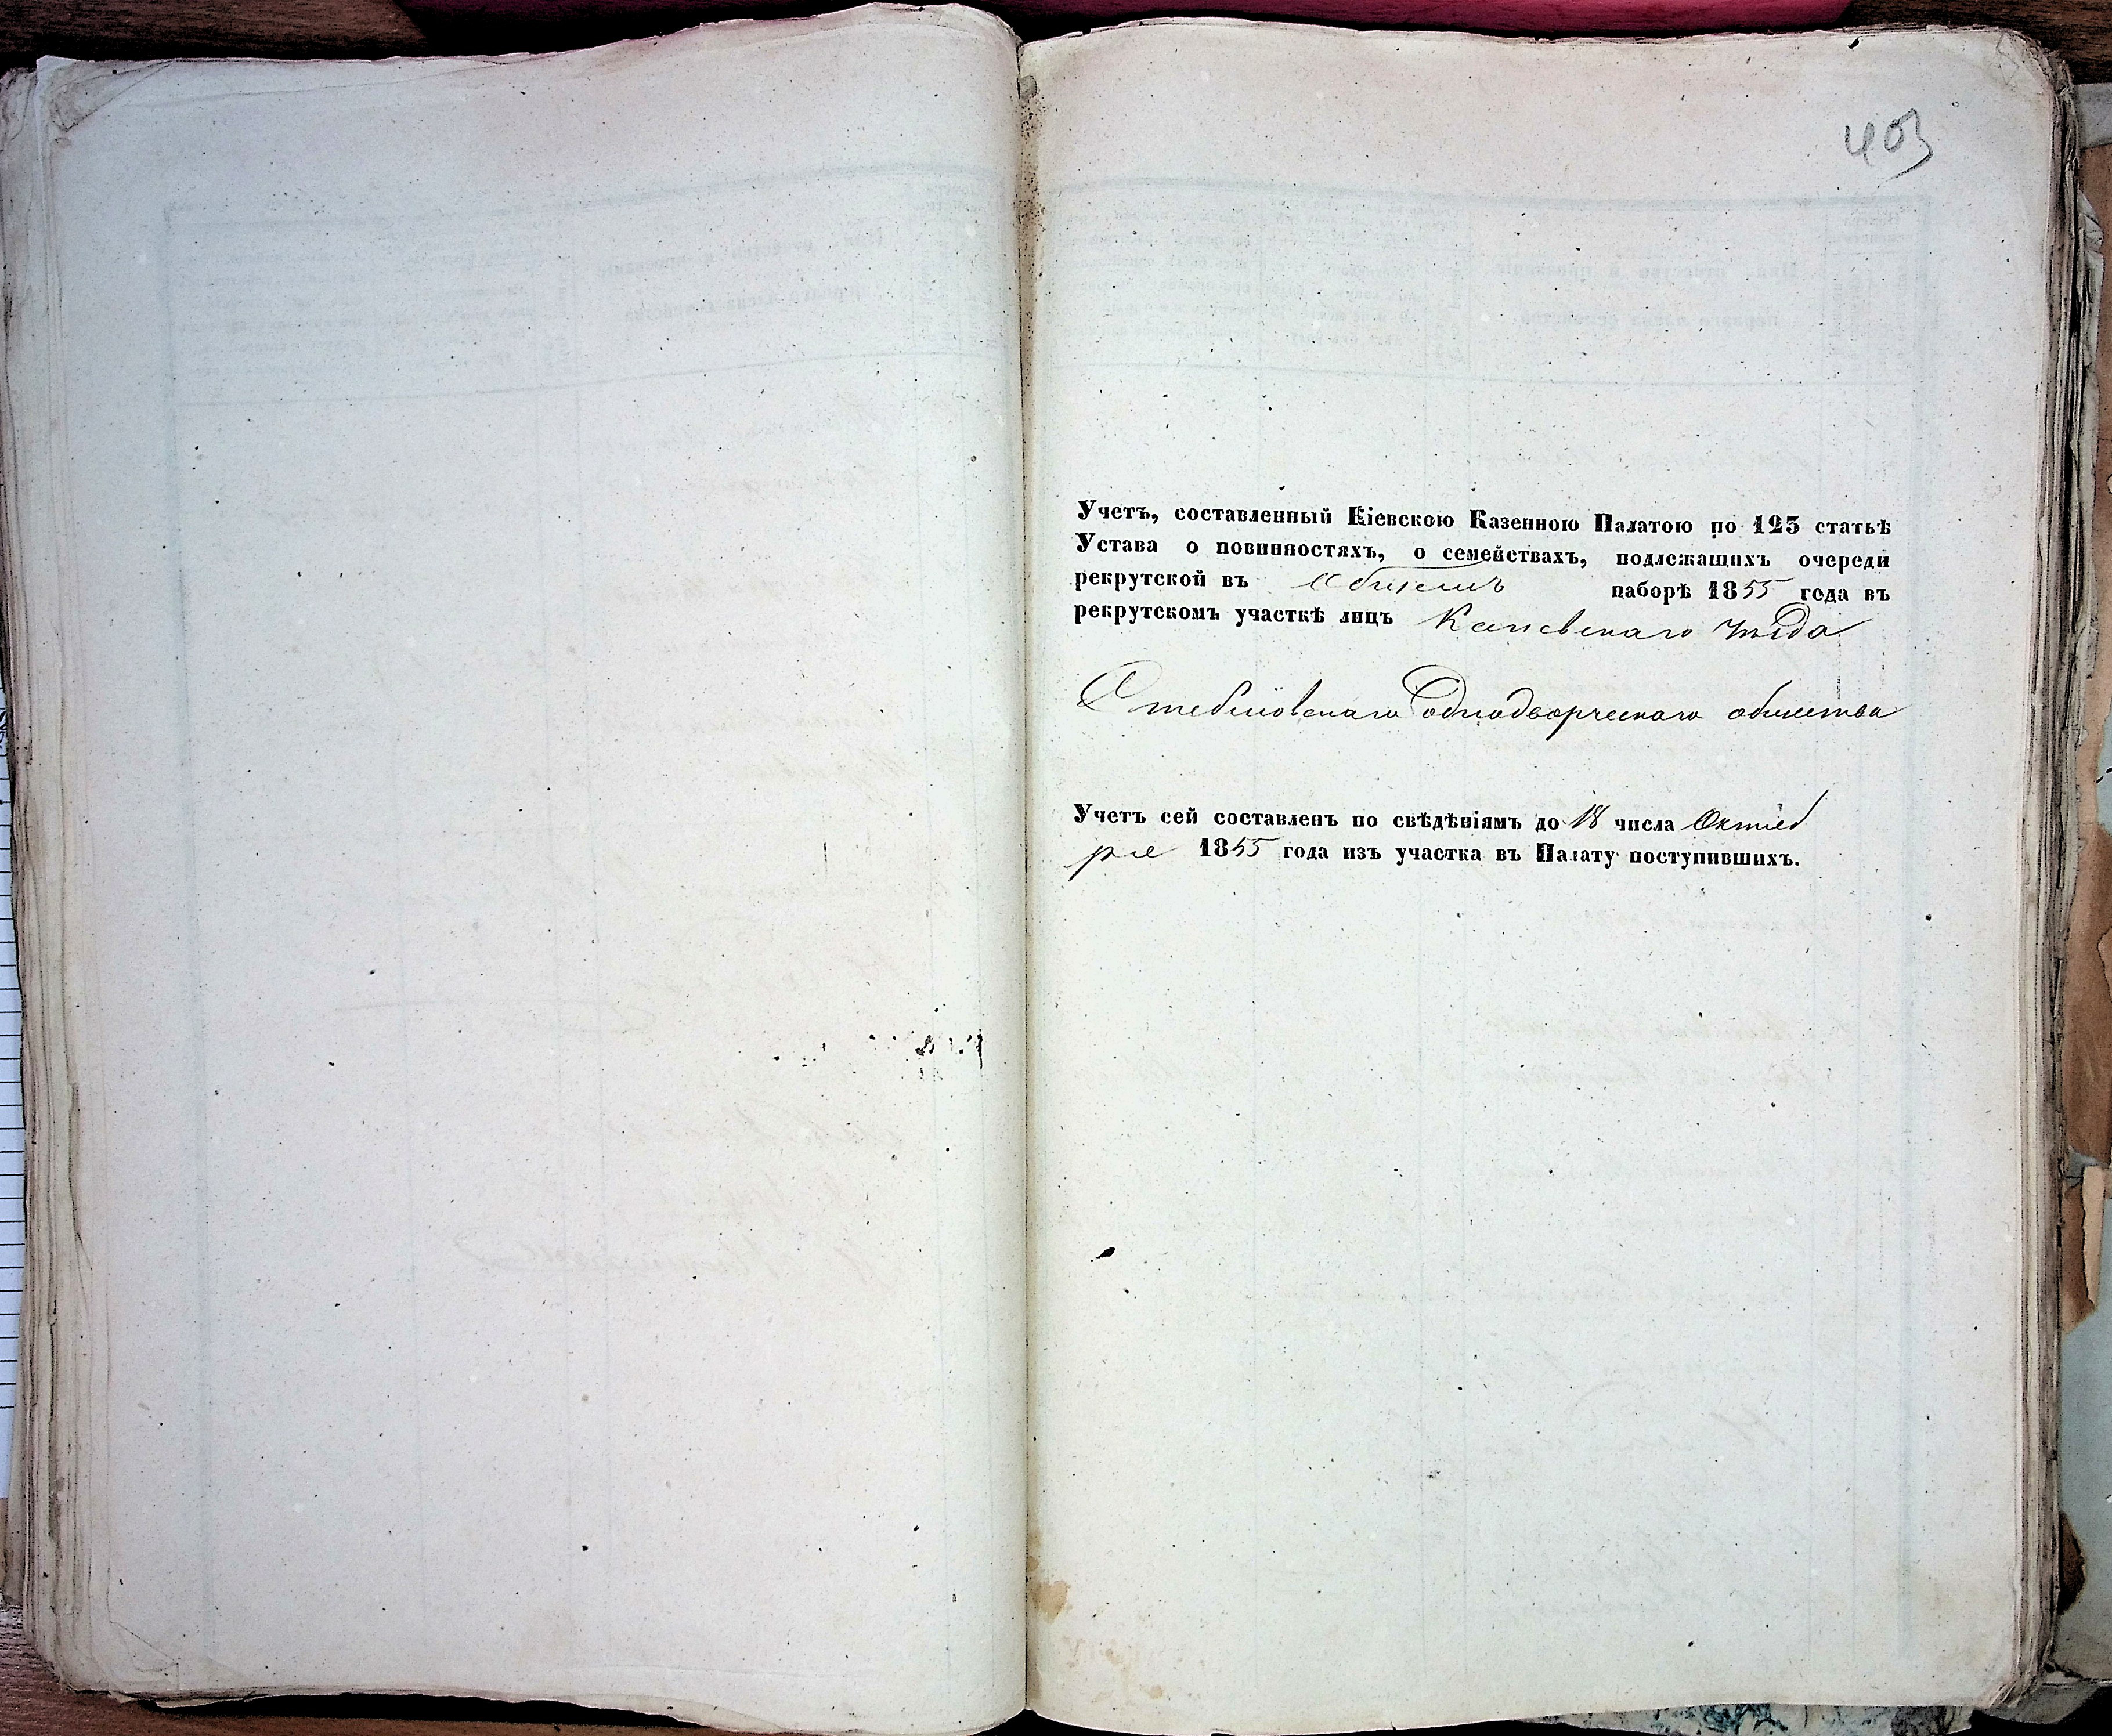 403
Учетъ, составленный Кіевскою Казенною Палатою по 123 статьѣ
Устава о повинностяхъ, о семействахъ, подлежащихъ очереди
рекрутской въ общемъ наборѣ 1855 года въ
рекрутскомъ участкѣ лицъ Каневскаго уѣзда
Стеблювскаго однодворческаго общества
Учетъ сей составленъ по свѣдѣніямъ до 18 числа Октяб
ря 1855 года изъ участка въ Палату поступившихъ.